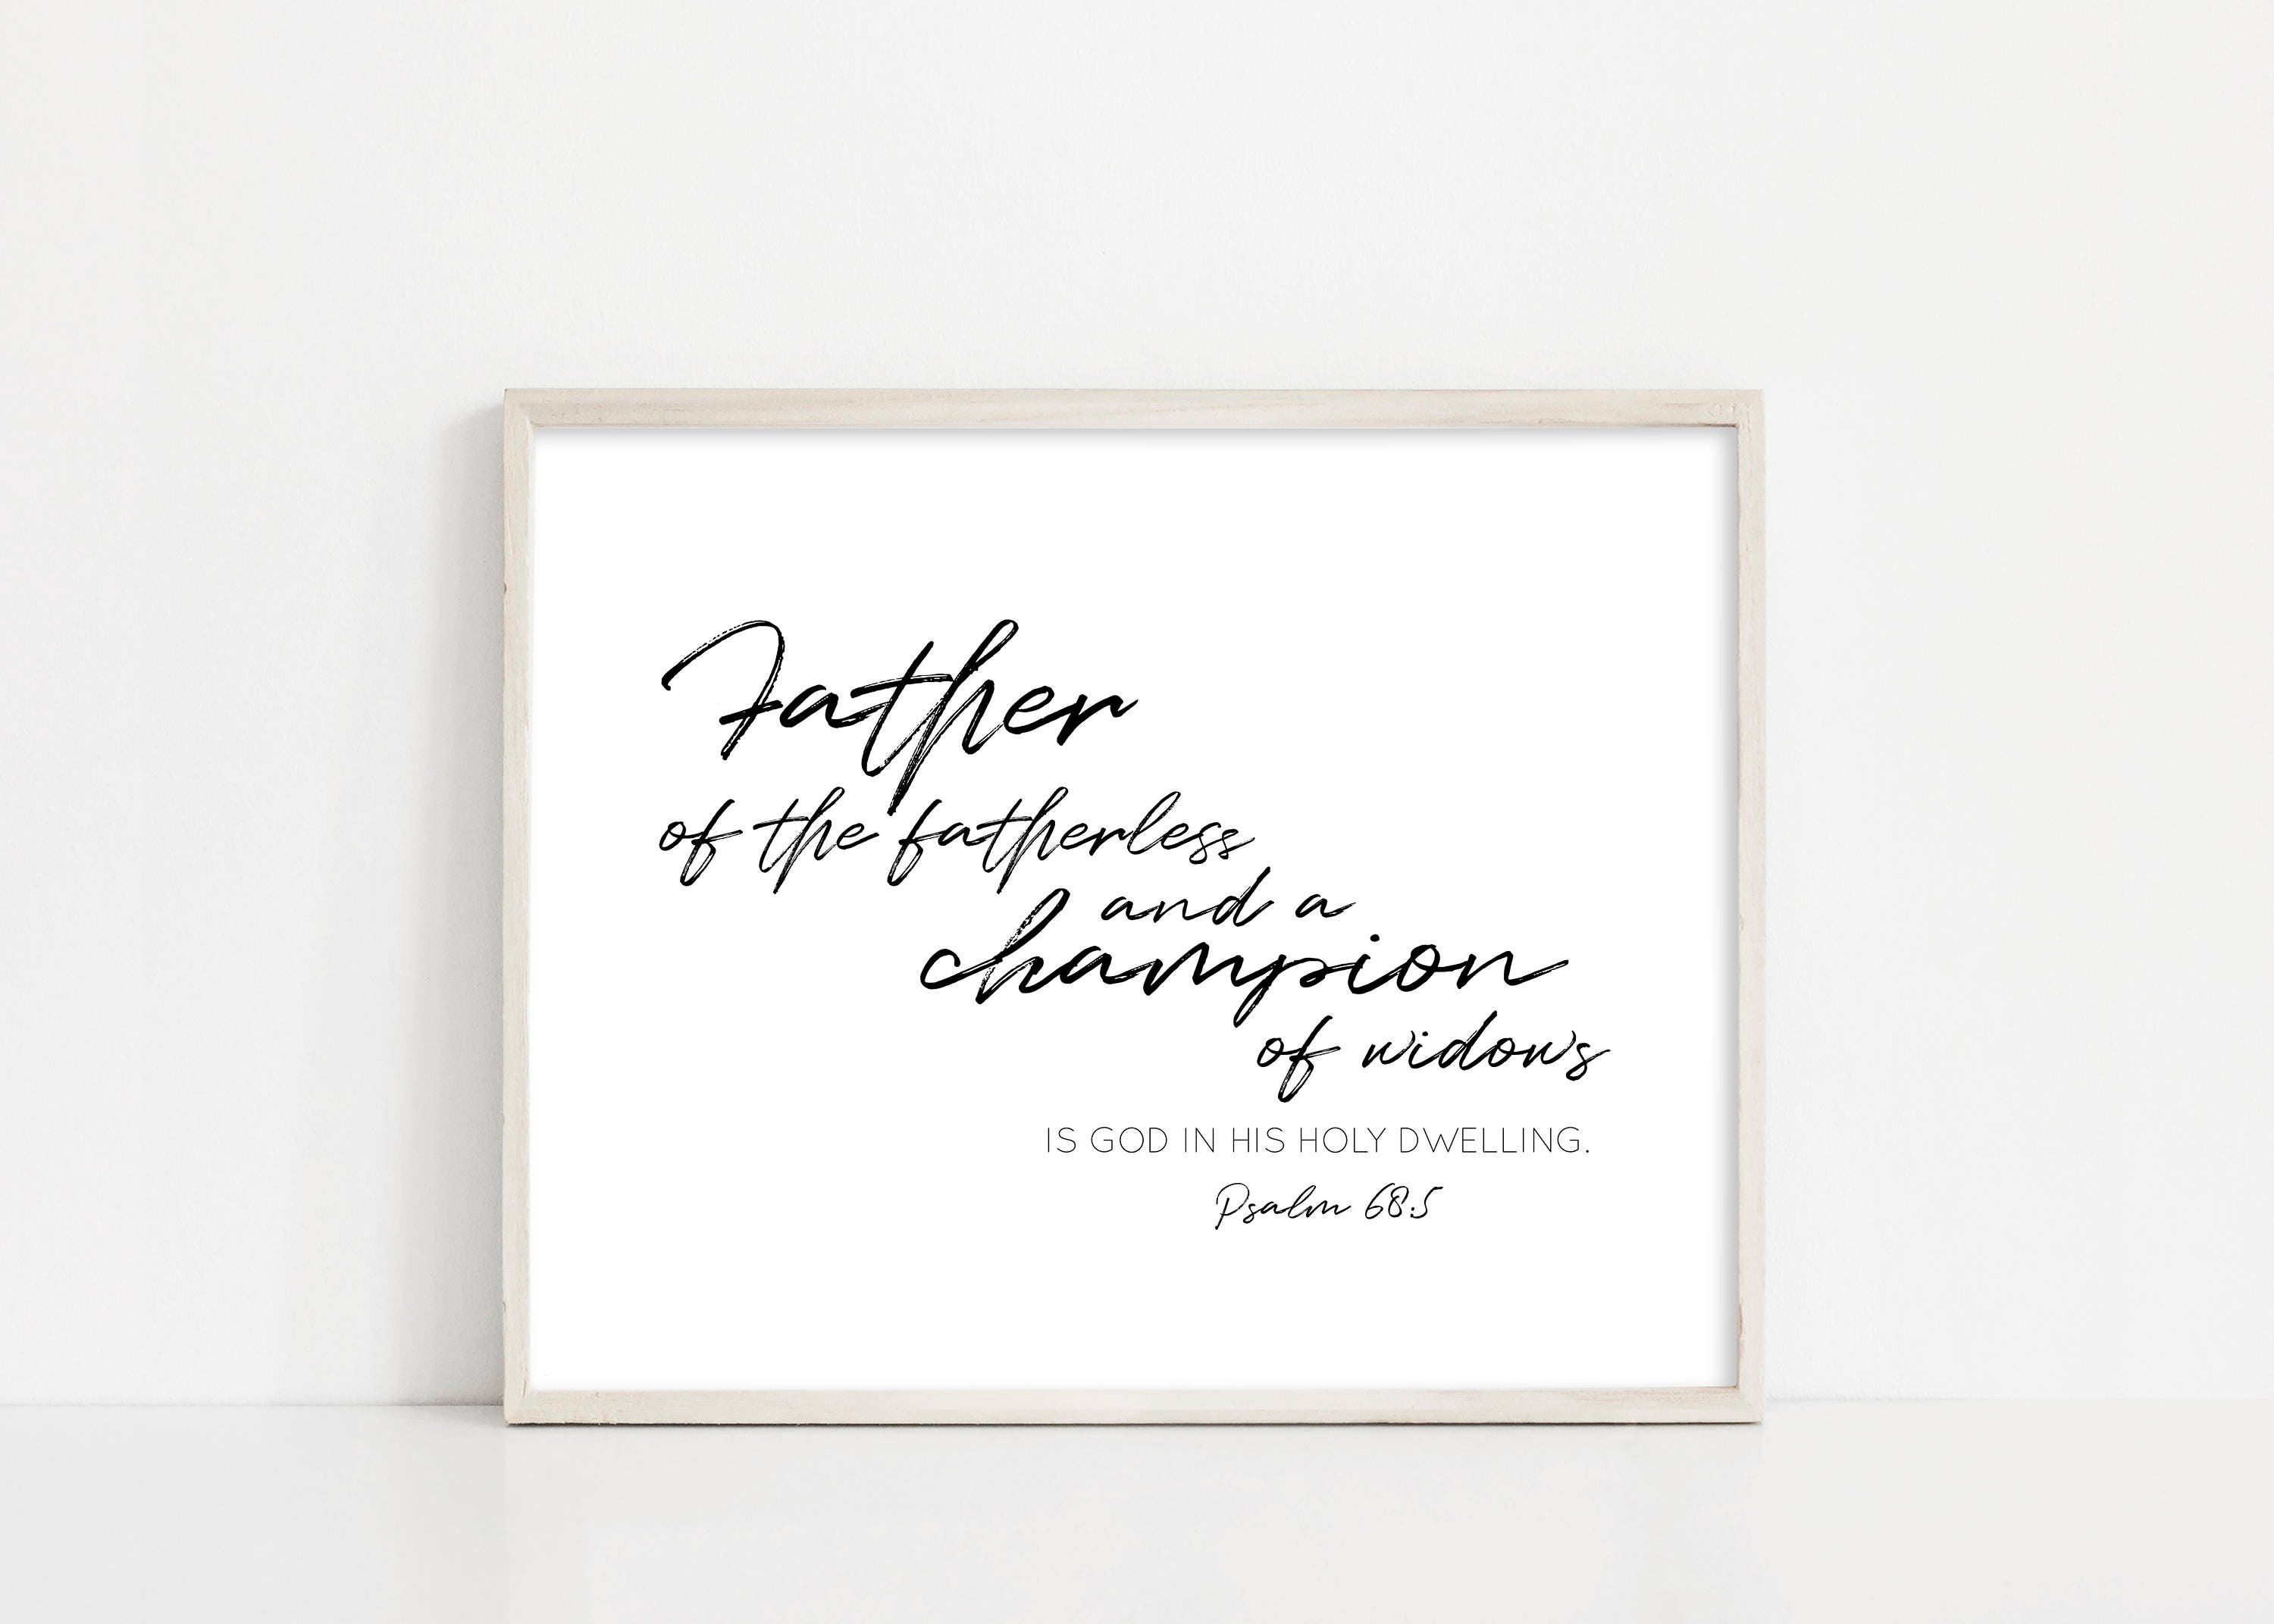 Father
of the fatherless
and a
champion
of widows
IS GOD IN HIS HOLY DWELLING.
Psalm 68:5